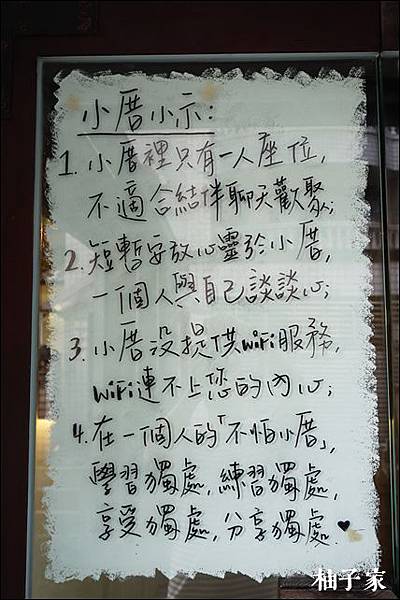 小厝小示:
1. 小厝裡只有一人座位,
不適合結伴聊天歡聚;
2. 短暫安放心靈於小厝,
一個人與自己談談心;
3. 小厝没提供WiFi服務,
WiFi連不上您的內心;
4. 在一個人的「不怕小厝」,
學習獨處,練習獨處,
享受獨處,分享獨處。♥
柚子家